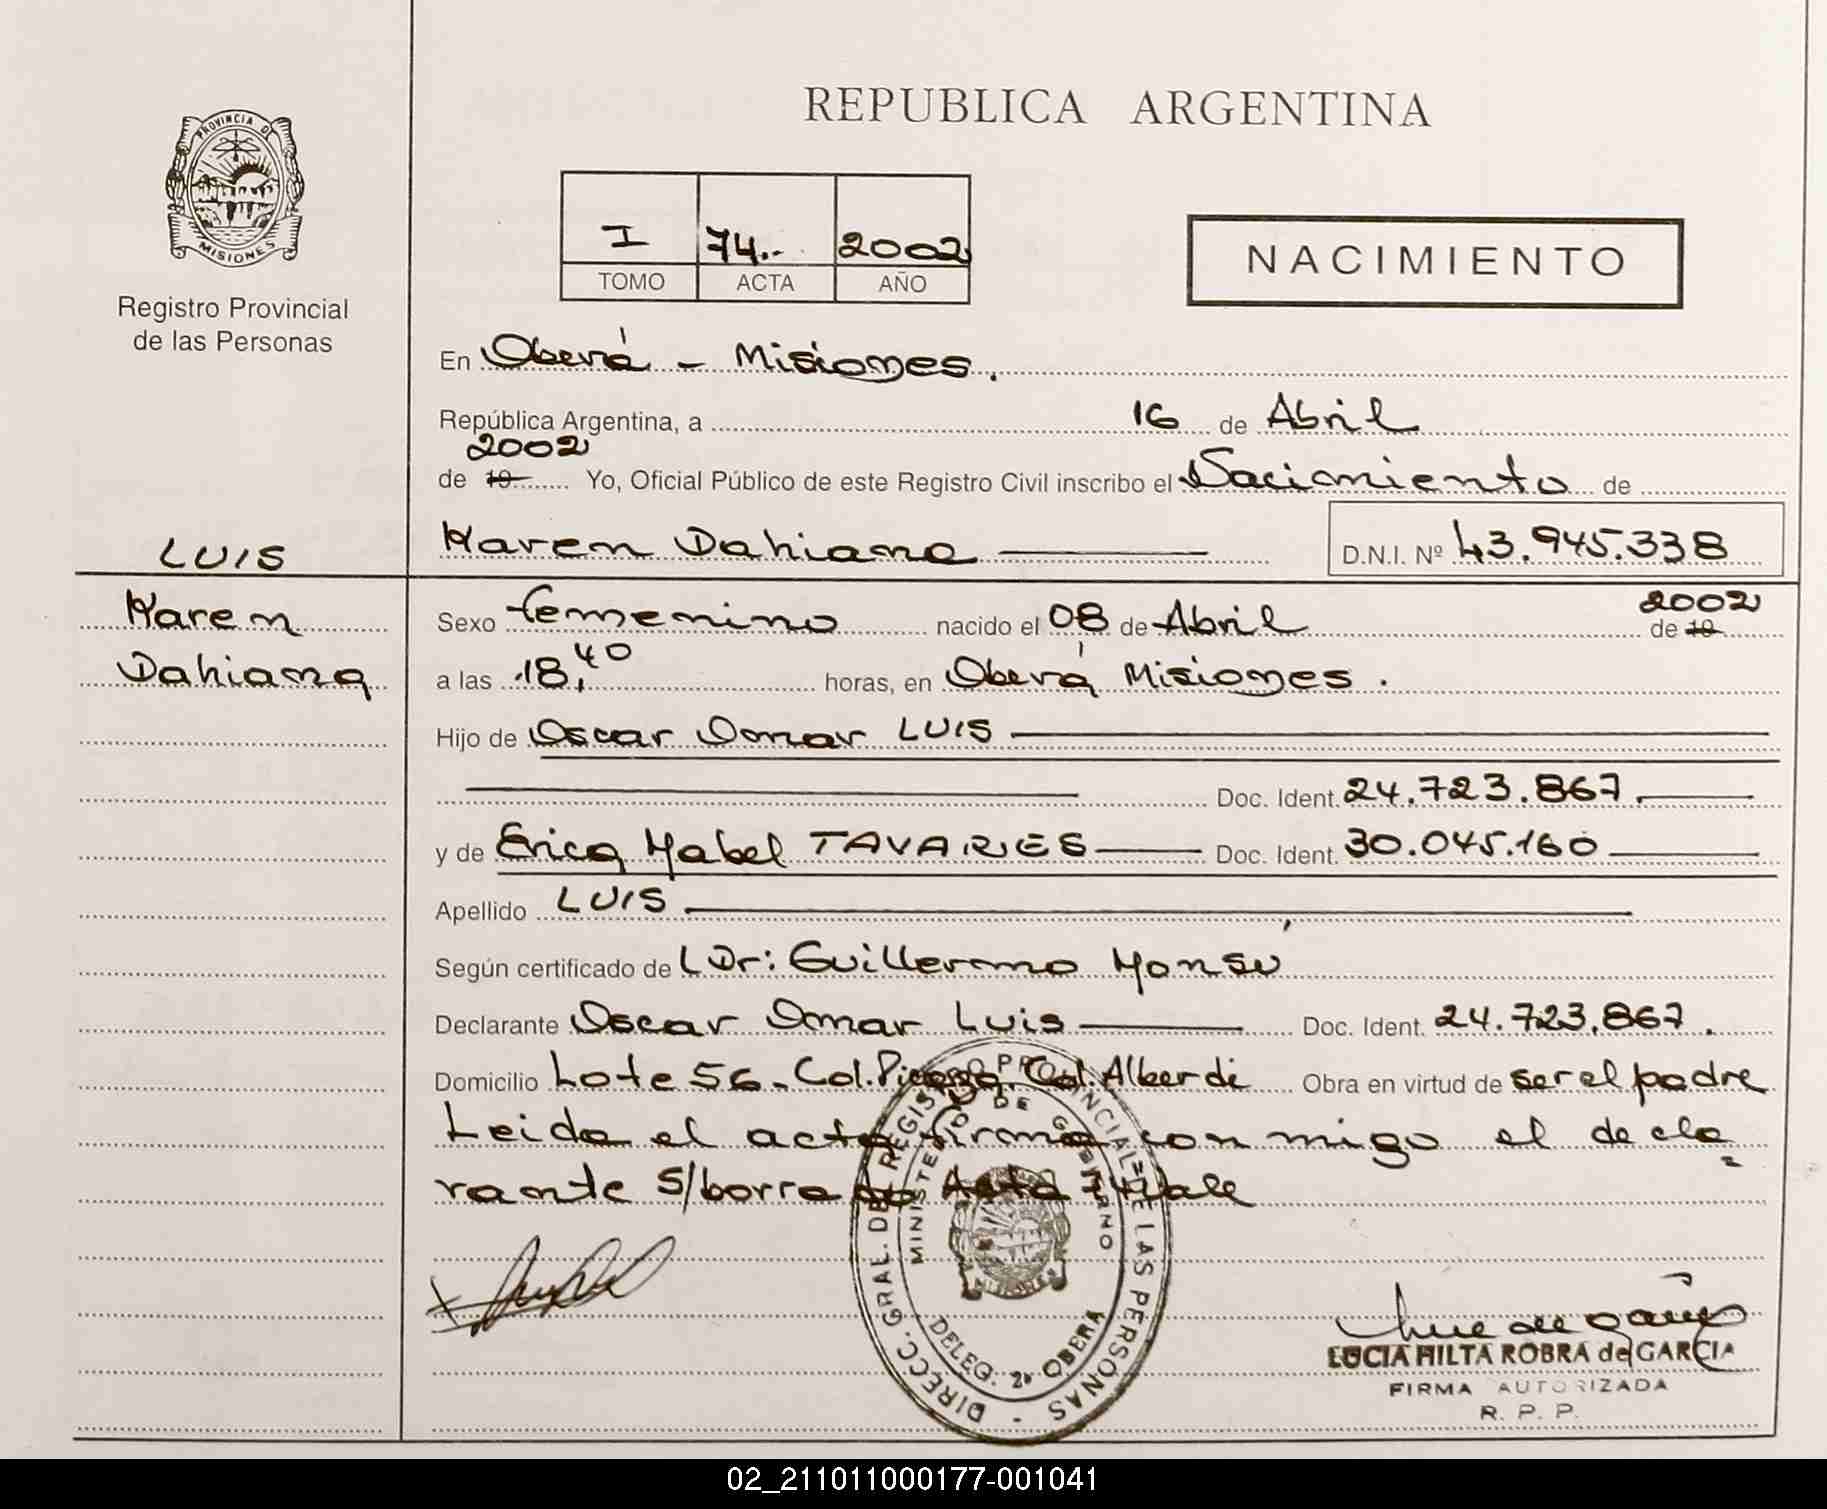 PROVINCIA DE
MISIONES
Registro Provincial
de las Personas
LUIS
Karen
Dahiana
REPUBLICA ARGENTINA
I 74.- 2002
TOMO ACTA AÑO
NACIMIENTO
En Oberá - Misiones.
República Argentina, a 16 de Abril
2002
de 19 Yo, Oficial Público de este Registro Civil inscribo el Nacimiento de
Karen Dahiana D.N.I. Nº 43.945.338
Sexo femenino nacido el 08 de Abril de 19 2002
a las 18,40 horas, en Oberá Misiones.
Hijo de Oscar Omar LUIS
Doc. Ident. 24.723.867.
y de Erica Mabel TAVARES Doc. Ident. 30.045.160
Apellido LUIS
Según certificado de L Dr: Guillermo Monsú
Declarante Oscar Omar Luis Doc. Ident. 24.723.867.
Domicilio Lote 56- Col. Alberdi Obra en virtud de ser el padre
Leida el acta firma con migo el decla
rante S/borrado Acta 74 vale
DIRECC. GRAL. DE REGISTRO PROVINCIAL DE LAS PERSONAS -
MINISTERIO DE GOBIERNO
MISIONES
DELEG. 2º OBERA
LUCIA HILTA ROBRA de GARCIA
FIRMA AUTORIZADA
R. P. P.
02_211011000177-001041